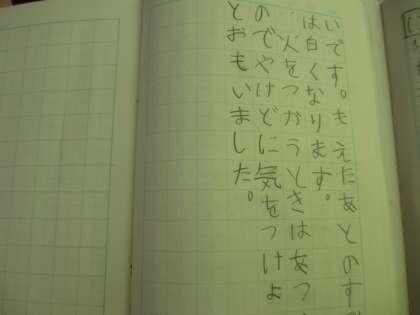 いです。もえたあとのす
は白くなります。
火をつかうときはあつ
のでやけどに気をつけよ
とおもいました。